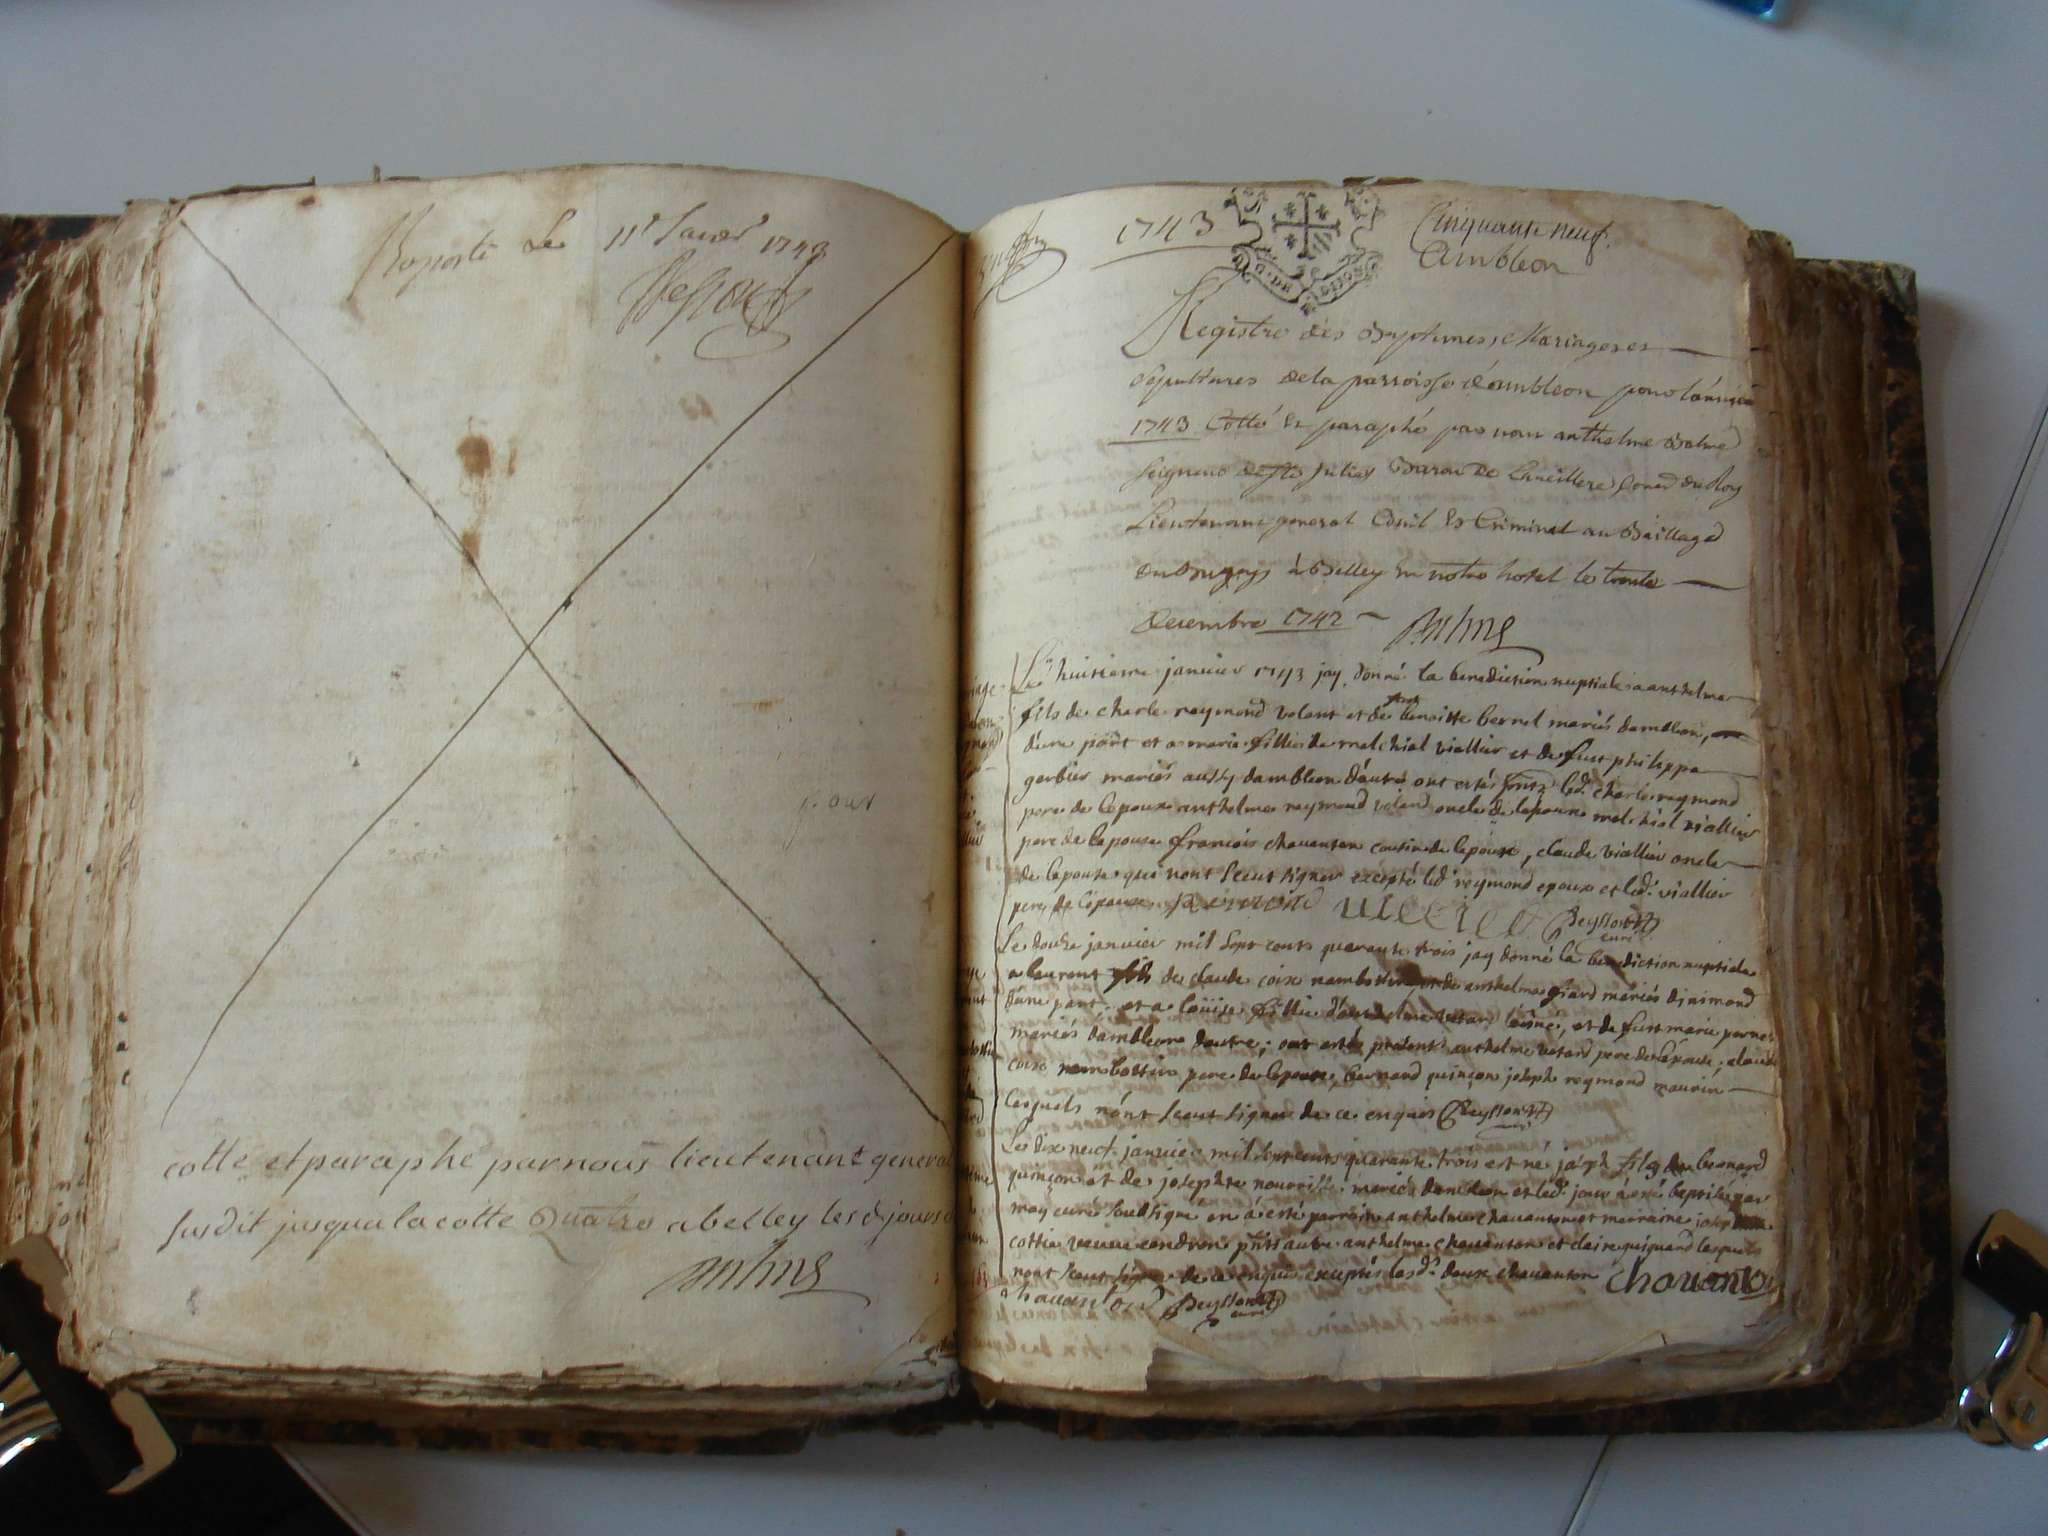 Raporté Le 11e Janvr 1743
cotté et paraphé par nous lieutenant general
susdit jusqua la cotte Quatre a belley lesd jours
1743
Cinquante neuf.
Ambleon
G. DE DIJON
Registre des Baptemes, Mariages et
Sepultures de la parroisse d'ambleon pour l'année
1743 Cotté et paraphé par nous anthelme Balme
Seigneur de Ste Julie Baron de Conser du Roy
Lieutenant general Civil et Criminel au Baillage
du Bugey à Belley en notre hotel le trente
decembre 1742
Le huitieme janvier 1743 jay donné la benediction nuptiale a anthelme
fils de charle reymond volant et de feue benoitte bernel mariés dambleon,
dune part et a marie fillie de melchiol viallier et de fuet philippe
gerbier mariés aussy dambleon dautre ont estés led. charle reymond
pere de lepoux anthelme reymond voland oncle de lepoux melchiol viallier
pere de lepouse francois chauanton cousin de lepoux, claude viallier oncle
de lepouse qui nont sceut signer excepté led. reymond epoux et led. viallier
pere de lepouse Beysson curé
Le douze janvier mil sept cents quarante trois jay donné la benediction nuptiale
a laurent fils de claude coixe nambottin et de anthelme giard mariés
dune part, et a louise fillie d'anthelme vetard l'ainé, et de fuet marie pernet
mariés dambleon dautre; ont estés presents anthelme vetard pere de lépouse, claude
coixe nambottin pere de lepoux, bernard quinçon joseph reymond maurin
lesquels nont sceut signer de ce enquis Beysson curé
Le dix neuf janvier mil sept cents quarante trois est né joseph fils de bernard
quinçon et de josephte mariés dambleon et led. jour a esté baptisé par
moy curé soussigné en a esté parrain anthelme chauanton et marraine
cottin veuve anthelme chauanton et claire guiguard lesquels
nont sceut signer de ce enquis exceptés lesd. deux chauanton chauanton
chauanton Beysson curé